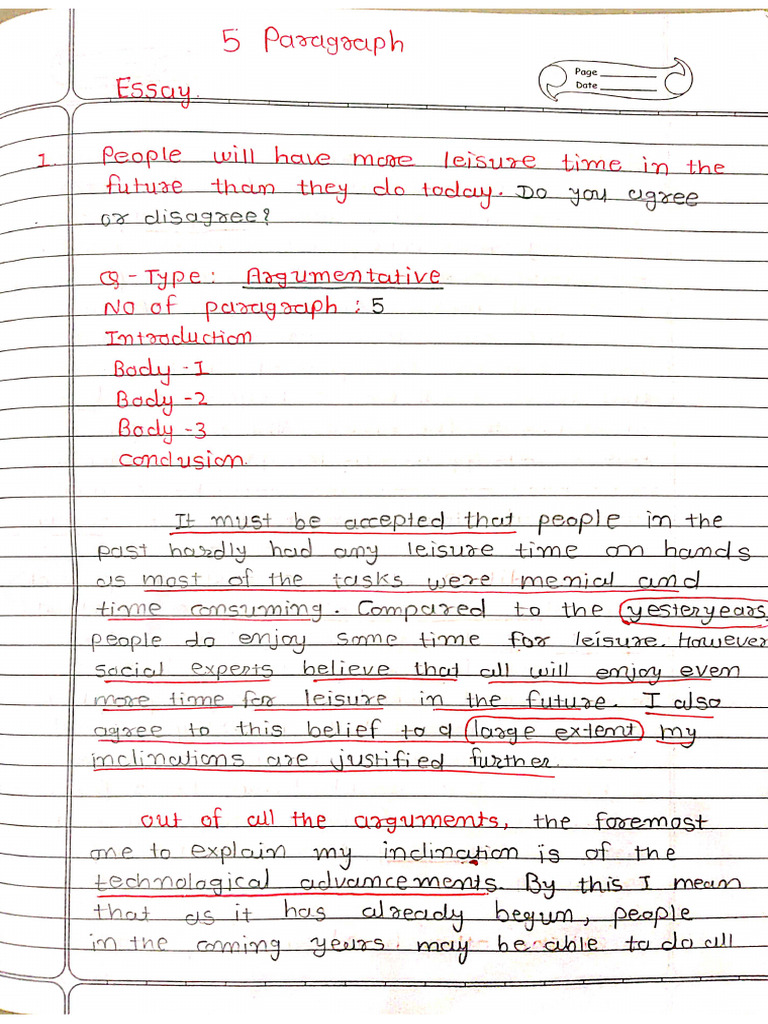 5 Paragraph
Essay.
Page
Date
1. People will have more leisure time in the
future than they do today. Do you agree
or disagree?
Q-Type: Argumentative
No of paragraph : 5
Introduction
Body -1
Body -2
Body -3
Conclusion.
It must be accepted that people in the
past hardly had any leisure time on hands
as most of the tasks were menial and
time consuming. Compared to the yesteryears,
people do enjoy some time for leisure. However
social experts believe that all will enjoy even
more time for leisure in the future. I also
agree to this belief to a large extent my
inclinations are justified further.
out of all the arguments, the foremost
one to explain my inclination is of the
technological advancements. By this I mean
that as it has already begun, people
in the coming years may be able to do all